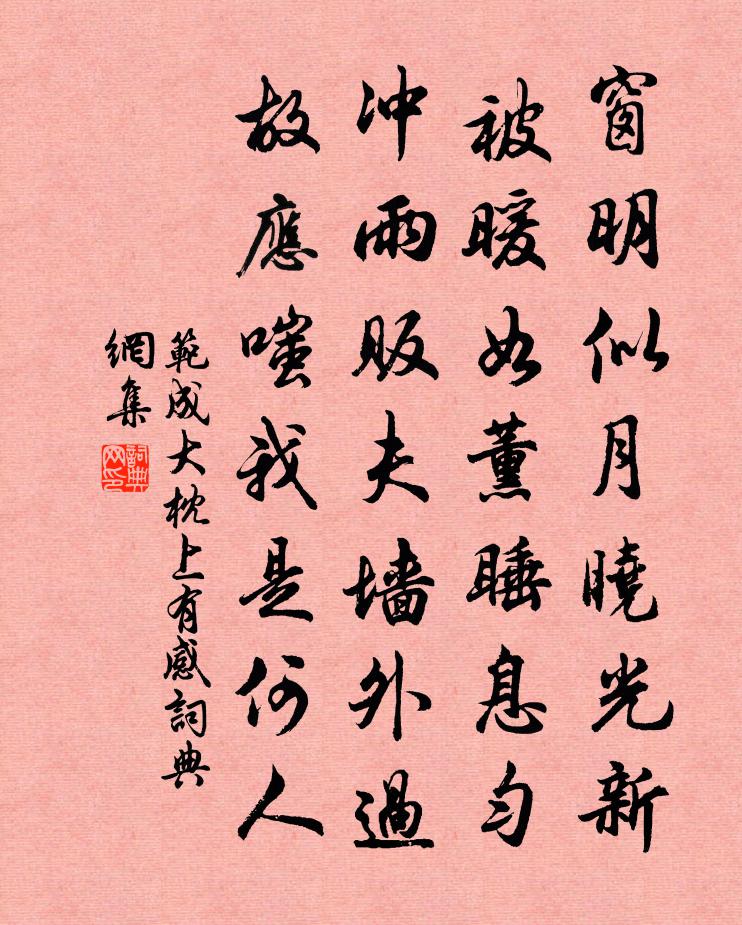 窗明似月曉光新
被暖如薰睡息匀
冲雨販夫墙外過
故應嗤我是何人
範成大枕上有感詞典
網集
詞典网印